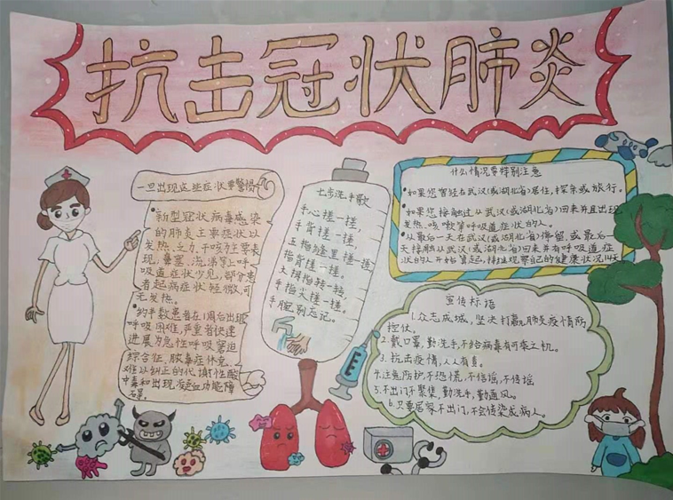 抗击冠状肺炎
一旦出现这些症状要警惕
•新型冠状病毒感染
的肺炎主要症状以
发热、乏力、干咳为主要表
现，鼻塞、流涕等上呼
吸道症状少见，部分患
者起病症状轻微，可
无发热。
•约半数患者在1周后出现
呼吸困难，严重者快速
进展为急性呼吸窘迫
综合征、脓毒症休克、
难以纠正的代谢性酸
中毒和出现凝血功能障
七步洗手歌
手心搓一搓，
手背搓一搓，
五指缝里搓一搓，
指背搓一搓，
大拇指转一转，
手指尖搓一搓，
手腕别忘记。
什么情况要特别注意
•如果您曾经在武汉(或湖北省)居住，探亲或旅行。
•如果您接触过从武汉(或湖北省)回来并且出现
发热，咳嗽等呼吸道症状的人。
•从最后一天在武汉(或湖北省)停留，或最后一
天接触从武汉(或湖北省)回来并有呼吸道症
状的人开始算起，持续观察自己的健康状况14天
宣传标语
1.众志成城，坚决打赢肺炎疫情防
控仗。
2.戴口罩，勤洗手，不给病毒有可乘之机。
3.抗击疫情，人人有责。
4.注意防护，不恐慌，不信谣，不传谣
5.不出门，不聚集，勤洗手，勤通风。
6.只要居家不出门，不会传染成病人。